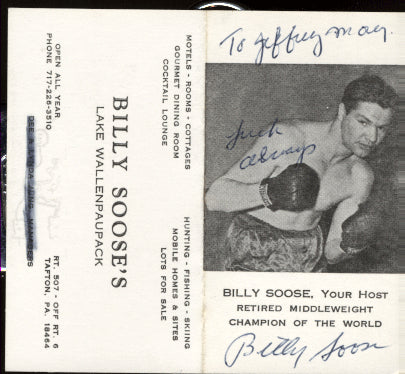 OPEN ALL YEAR
PHONE 717-226-3510
RT. 507 - OFF RT. 6
TAFTON, PA. 18464
BILLY SOOSE'S
LAKE WALLENPAUPACK
MOTELS - ROOMS - COTTAGES
GOURMET DINING ROOM
COCKTAIL LOUNGE
HUNTING - FISHING - SKIING
MOBILE HOMES & SITES
LOTS FOR SALE
To Jeffrey May.
Luck
always
BILLY SOOSE, YOUR HOST
RETIRED MIDDLEWEIGHT
CHAMPION OF THE WORLD
Billy Soose